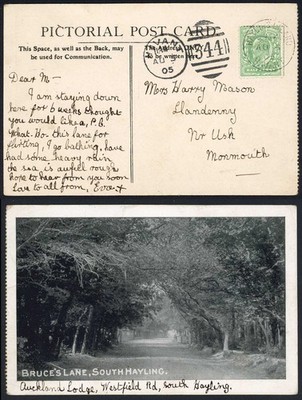 PICTORIAL POST CARD.
This Space, as well as the Back, may
be used for Communication.
HAVANT
AU
05
344
Dear M—
I am staying down
here for 6 weeks thought
you would like a P.C.
What. Ho. this lane for
flirting, I go bathing, have
had some heavy rain,
the sea is awfull rough
hope to hear from you soon
Love to all from, Eva x
Mrs Harry Mason
Llandenny
Nr Usk
Monmouth
BRUCE'S LANE, SOUTH HAYLING.
Auckland Lodge, Westfield Rd, South Hayling.